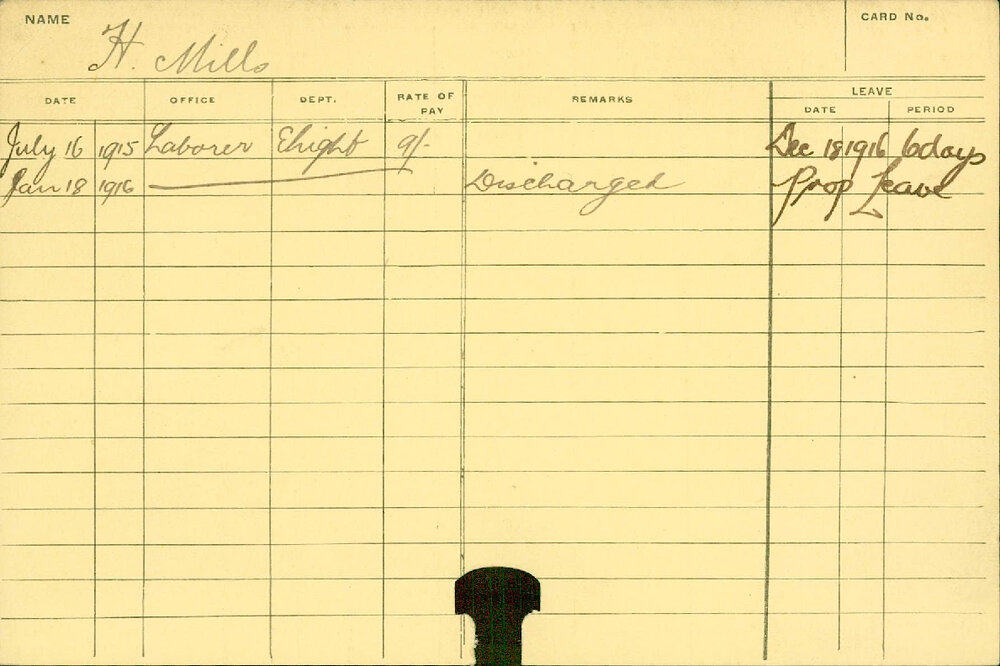 NAME H. Mills CARD No.
LEAVE
DATE OFFICE DEPT. RATE OF PAY REMARKS DATE PERIOD
July 16 1915 Laborer Elright 9/- Dec 18 1916 6 days
Jan 18 1916 Discharged Prop Leave